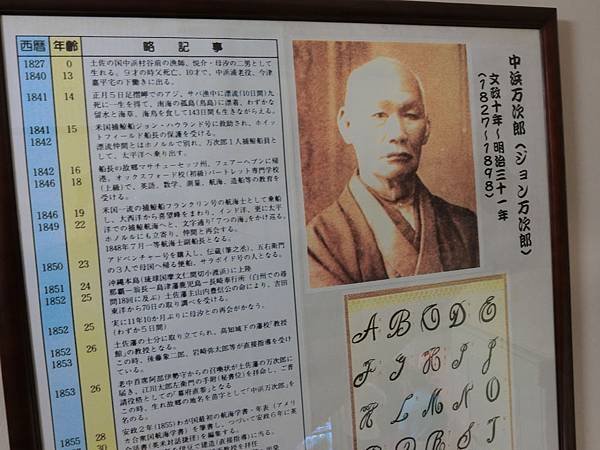 西暦 年齢 略記事
1827 0 土佐の国中浜村谷前の漁師、悦介・母汐の二男として
1840 13 生れる。9才の時父死亡、10才で、中浜浦老役、今津
嘉平宅の下働きに出る。
1841 14 正月5日足摺岬でのアジ、サバ漁中に漂流(10日間)九
死に一生を得て、南海の孤島(鳥島)に漂着、わずかな
留水と海草、海鳥を食して143日間も生きながらえる。
1841 15 米国捕鯨船ジョン・ハウランド号に救助され、ホイッ
1842 トフィールド船長の保護を受ける。
漂流仲間とはホノルルで別れ、万次郎1人捕鯨船員と
して、太平洋へ乗り出す。
1842 16 船長の故郷マサチューセッツ州、フェアーヘブンに帰
1846 18 港。オックスフォード校(初級)バートレット専門学校
(上級)で、英語、数学、測量、航海、造船等の教育を
受ける。
1846 19 米国一流の捕鯨船フランクリン号の航海士として乗船
1849 22 し、大西洋から喜望峰をまわり、インド洋、更に太平
洋での捕鯨航海へと、文字通り「7つの海」をかけ巡る。
ホノルルにも立寄り、仲間と再会する。
1848年7月一等航海士副船長となる。
1850 23 アドベンチャー号を購入し、伝蔵(筆之丞)、五右衛門
の3人で母国へ帰る便船、サラボイド号の人となる。
1851 24 沖縄本島(琉球国摩文仁間切小渡浜)に上陸
1852 25 那覇―翁長―鹿児島―長崎奉行所(白州での尋
問18回に及ぶ)土佐藩主山内豊信公の命により、吉田
東洋から70日の取り調べを受ける。
1852 25 実に11年10か月ぶりに母汐との再会がかなう。
(わずか5日間)
1852 26 土佐藩の士分に取り立てられ、高知城下の藩校「教授
1853 館」の教授となる。
この時、後藤象二郎、岩崎弥太郎等が直接指導を受け
ている。
1853 26 老中首席阿部伊勢守からの召喚状が土佐藩の万次郎に
届き、江川太郎左衛門の手附(秘書役)を拝命し、ご普
請役格としての「幕府直参」となる
この時、生れ故郷の地名を苗字として「中浜万次郎」を
名のる。
1855 28 安政2年(1855)わが国最初の航海学書・年表(アメリ
カ合衆国航海学書)を筆書し、つづいて安政6年に英
会話書(英米対話捷径)を編集する。
中浜万次郎(ジョン万次郎)
文政十年~明治三十一年
(1827~1898)
A B C D E
F G H I J
K L M N O
P Q R S T